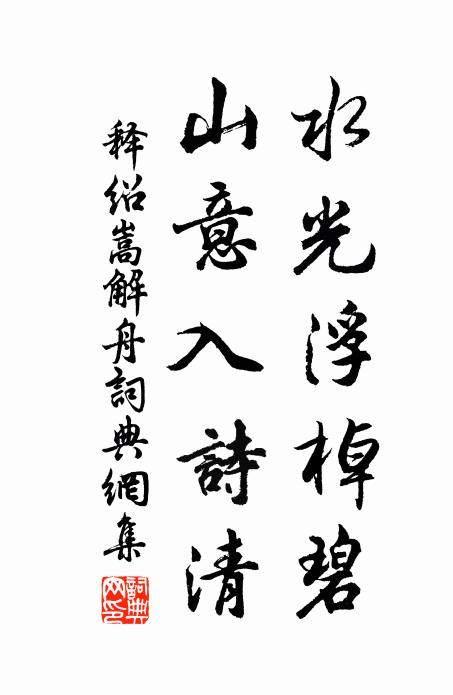 水光浮棹碧
山意入詩清
释绍嵩解舟詞典網集
詞典網印